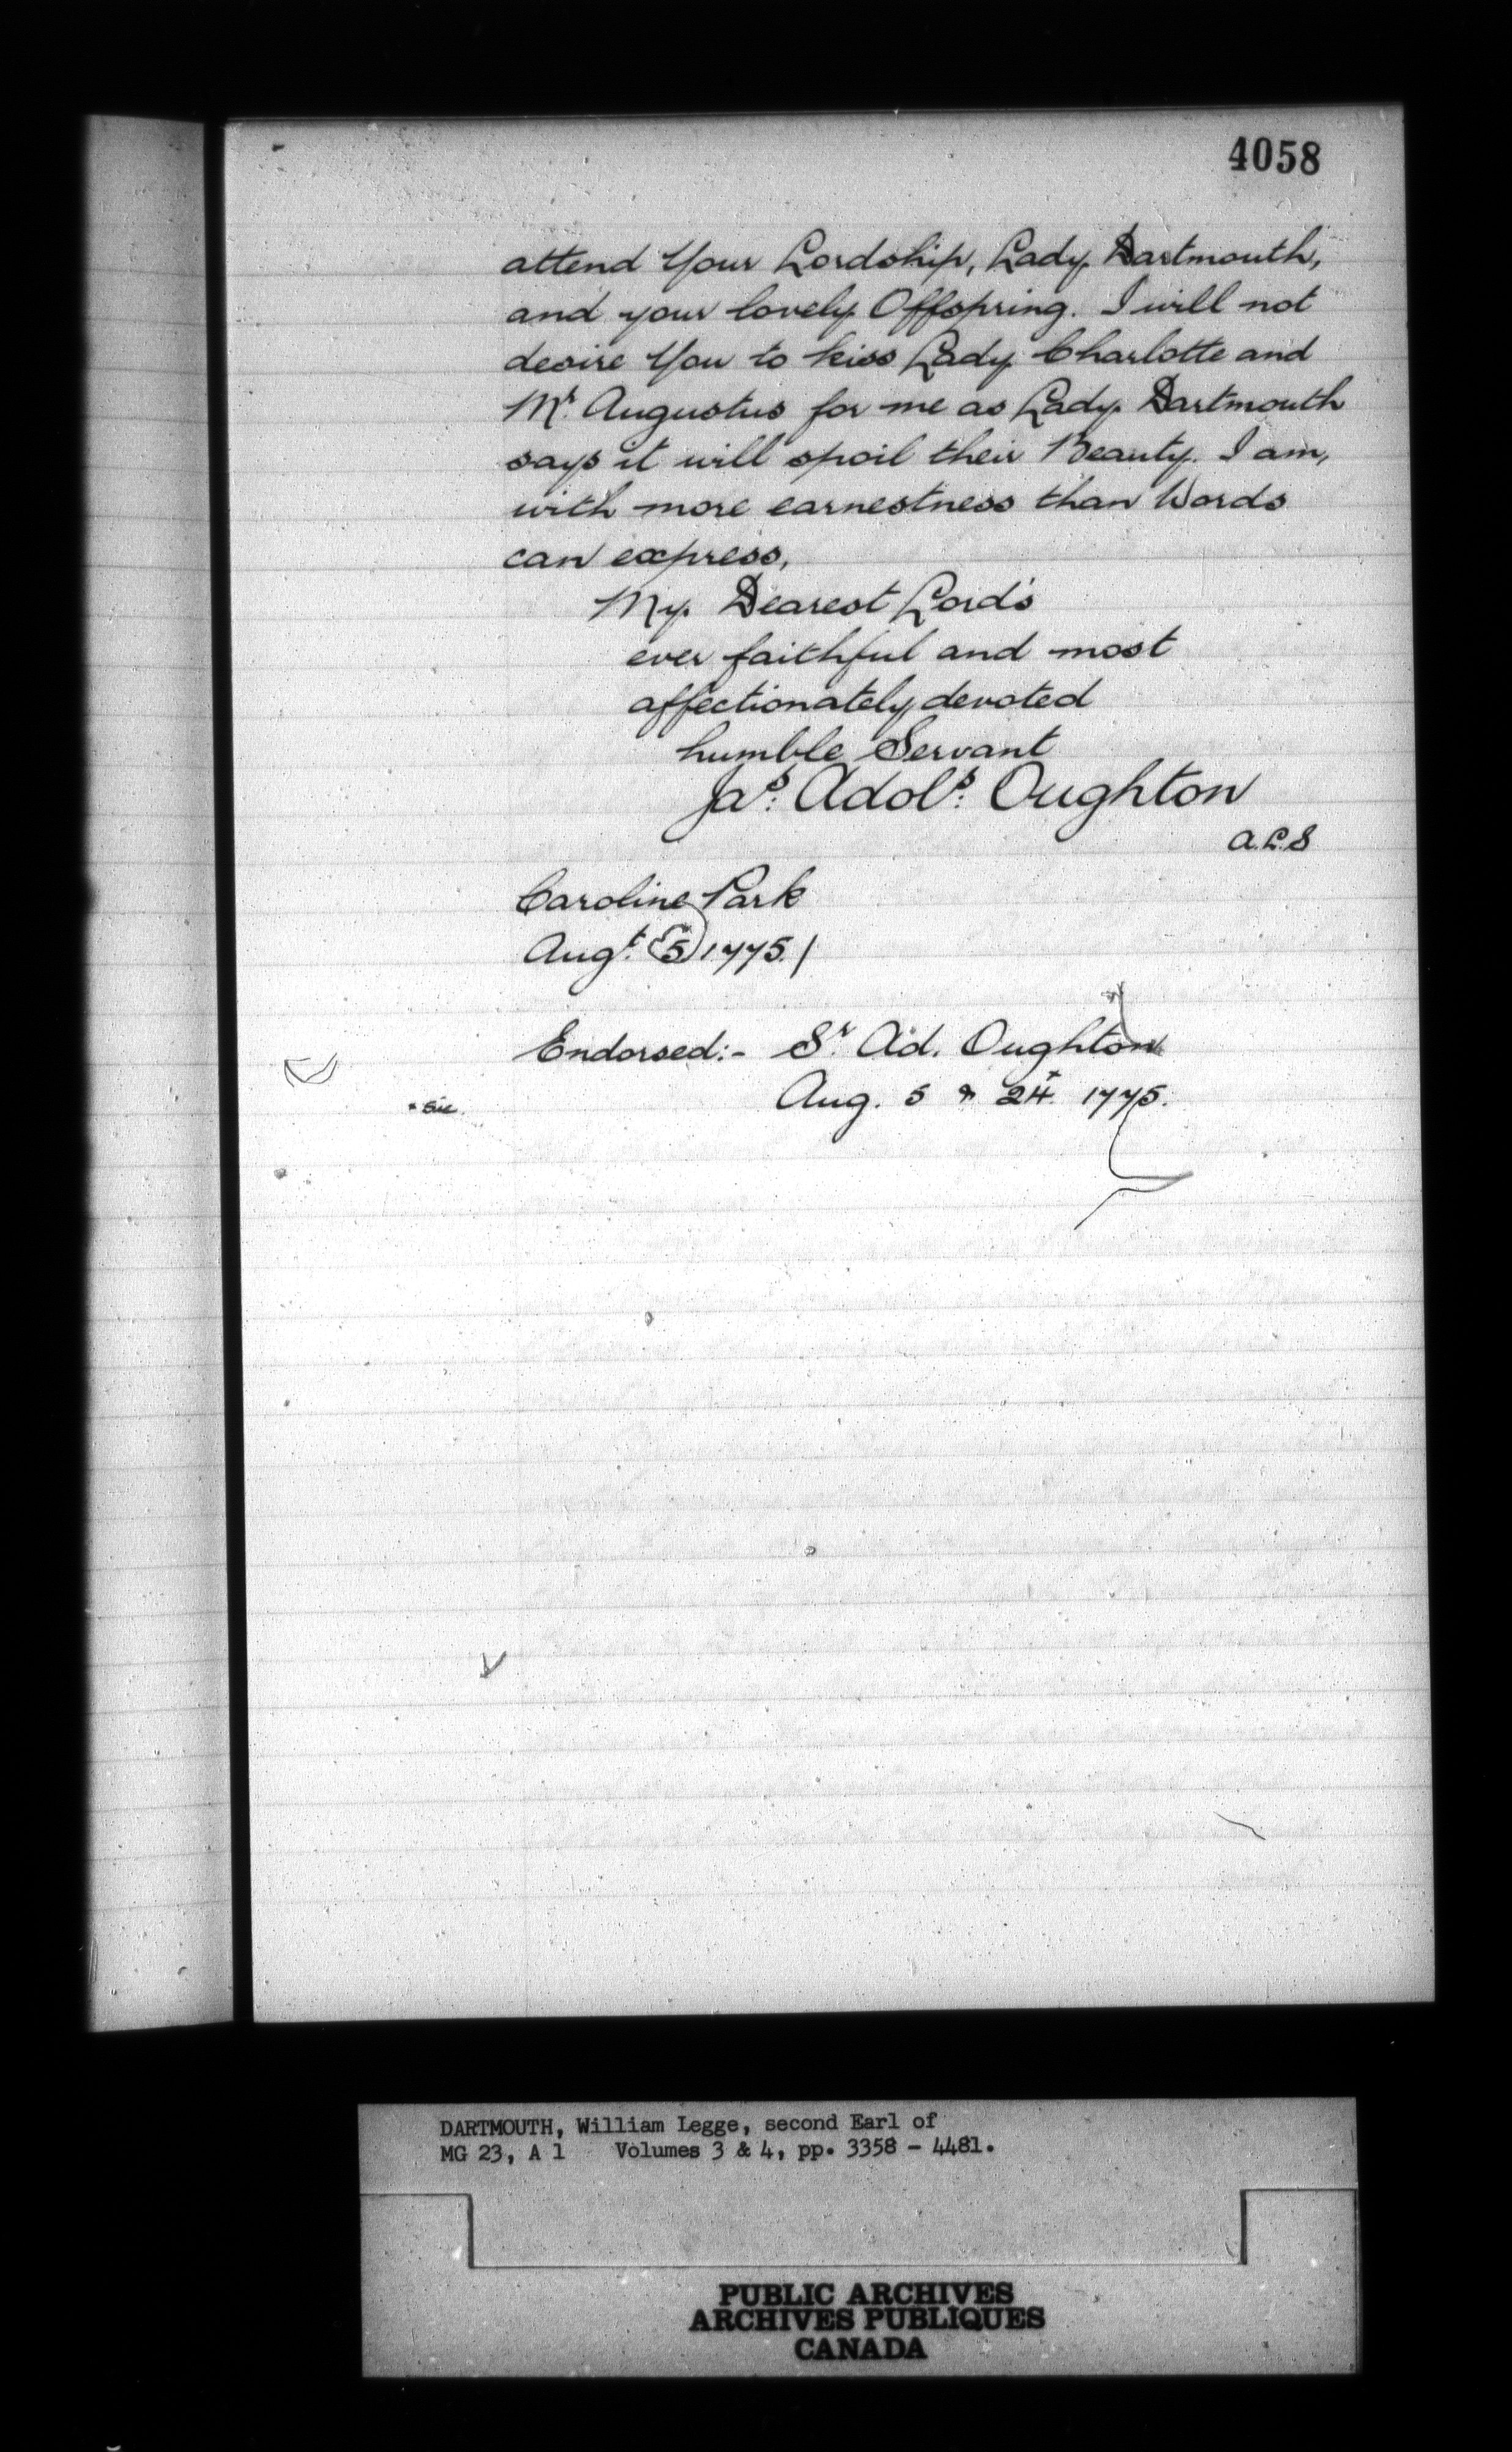 4058
attend Your Lordship, Lady Dartmouth,
and your lovely Offspring. I will not
desire You to kiss Lady Charlotte and
Mr. Augustus for me as Lady Dartmouth
says it will spoil their Beauty. I am,
with more earnestness than Words
can express,
My Dearest Lord's
ever faithful and most
affectionately devoted
humble Servant
Jas: Adols: Oughton
A.L.S
Caroline Park
Augt. 5 1775./
Endorsed:- Sr. Ad. Oughton
Aug. 5 & 24* 1775.
* sic.
DARTMOUTH, William Legge, second Earl of
MG 23, A 1 Volumes 3 & 4, pp. 3358 - 4481.
PUBLIC ARCHIVES
ARCHIVES PUBLIQUES
CANADA